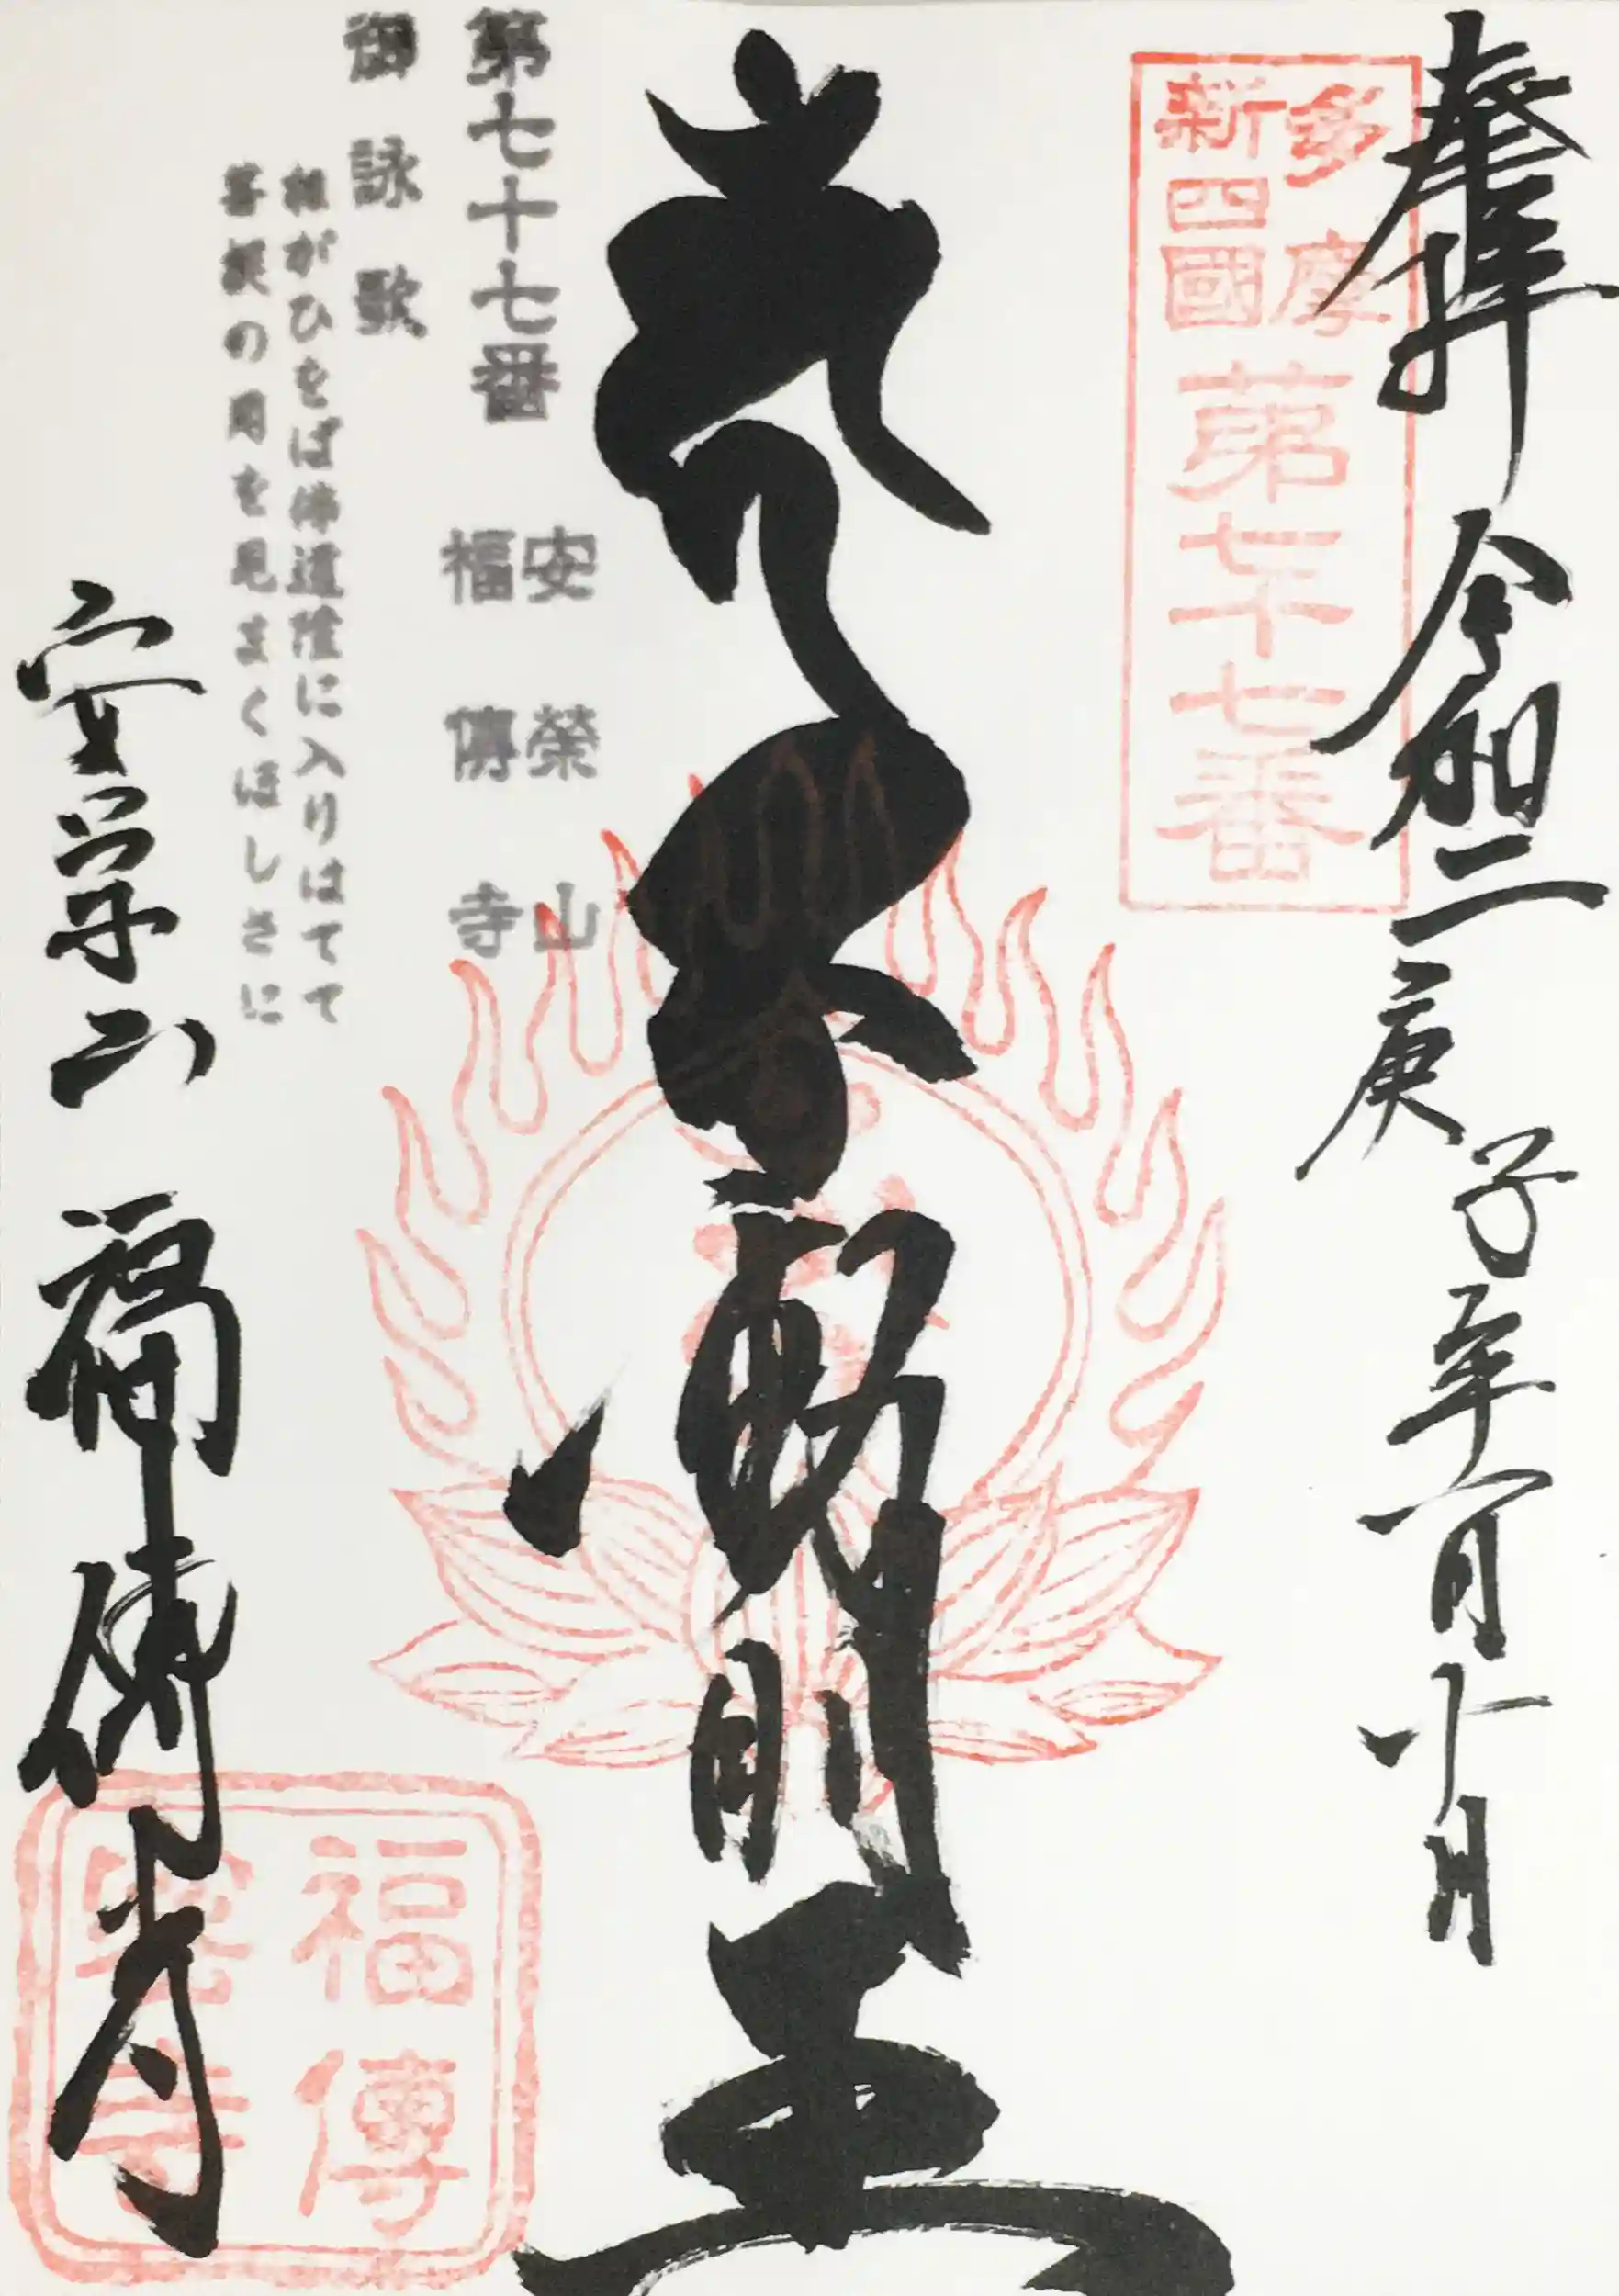 奉拝
令和二庚子年一月十日
多摩
新四國
第七十七番
不動明王
第七十七番
安榮山
福傳寺
御詠歌
がひをば佛道隆に入りはてて
菩提の月を見まくほしさに
安栄山
福傳寺
福傳
寺